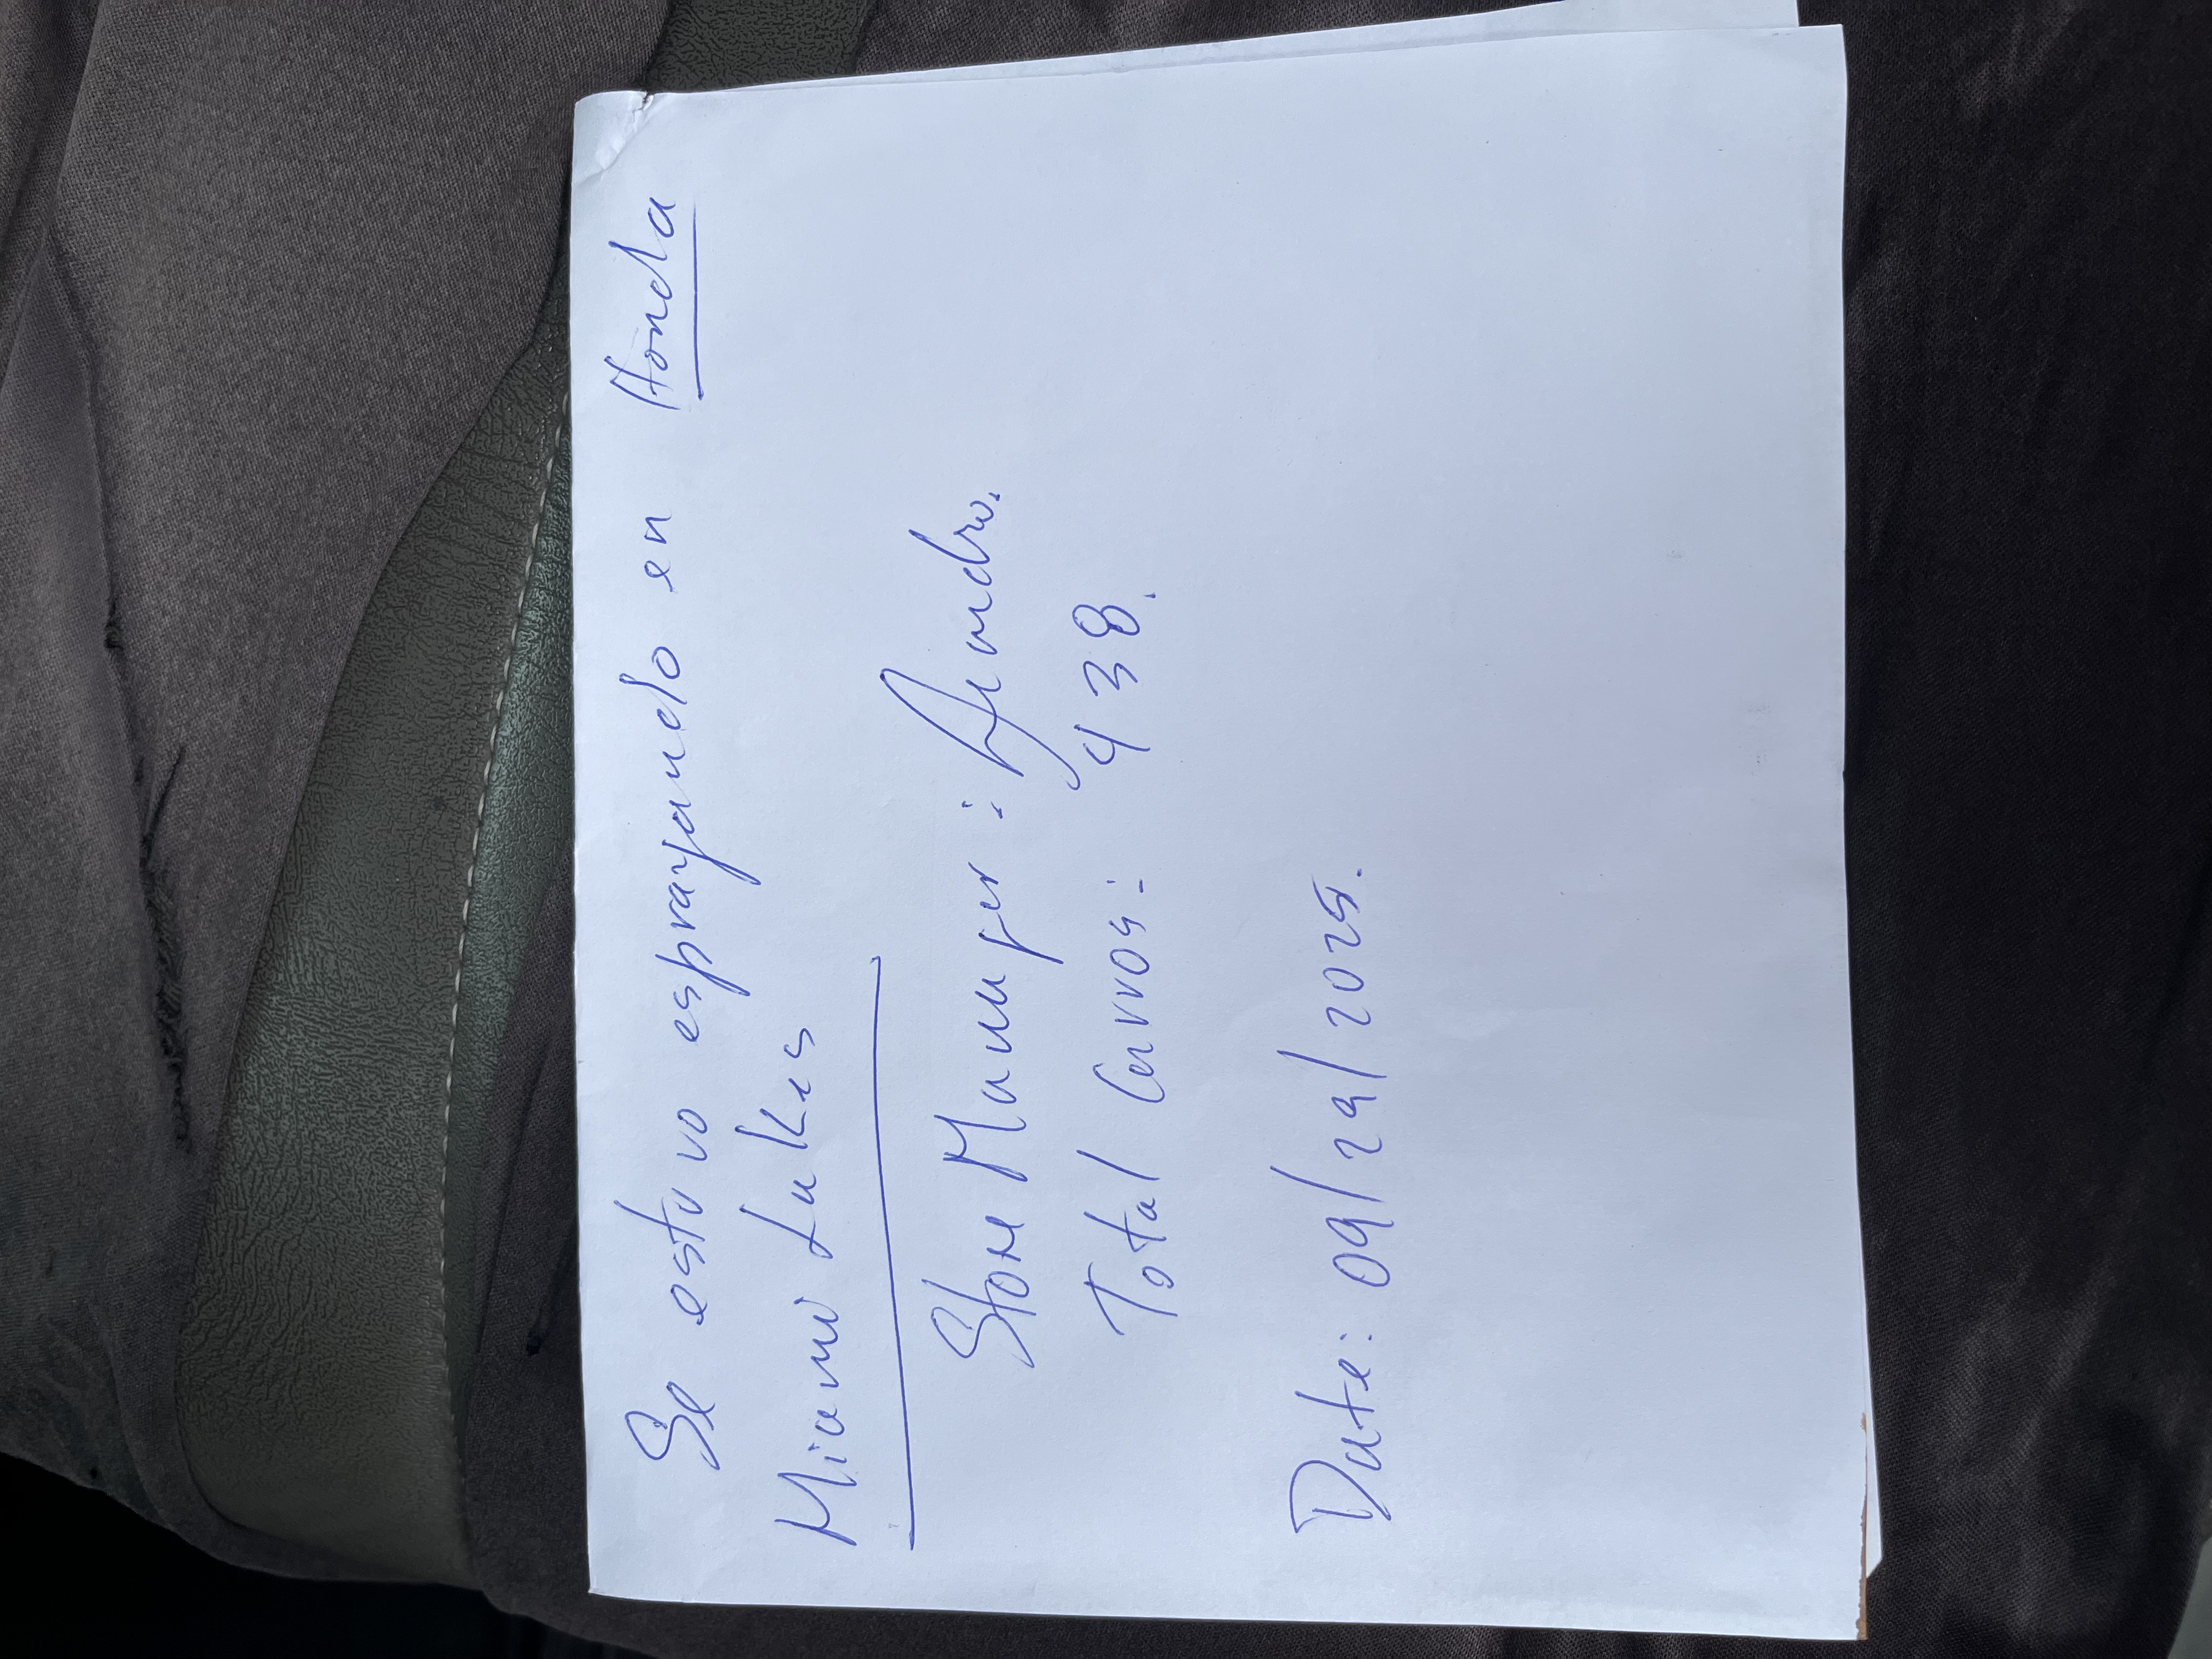 Se estuvo esprayando en Honda
Miami Lakes
Store Manager:
Total Carros: 438.
Date: 09/29/2025.